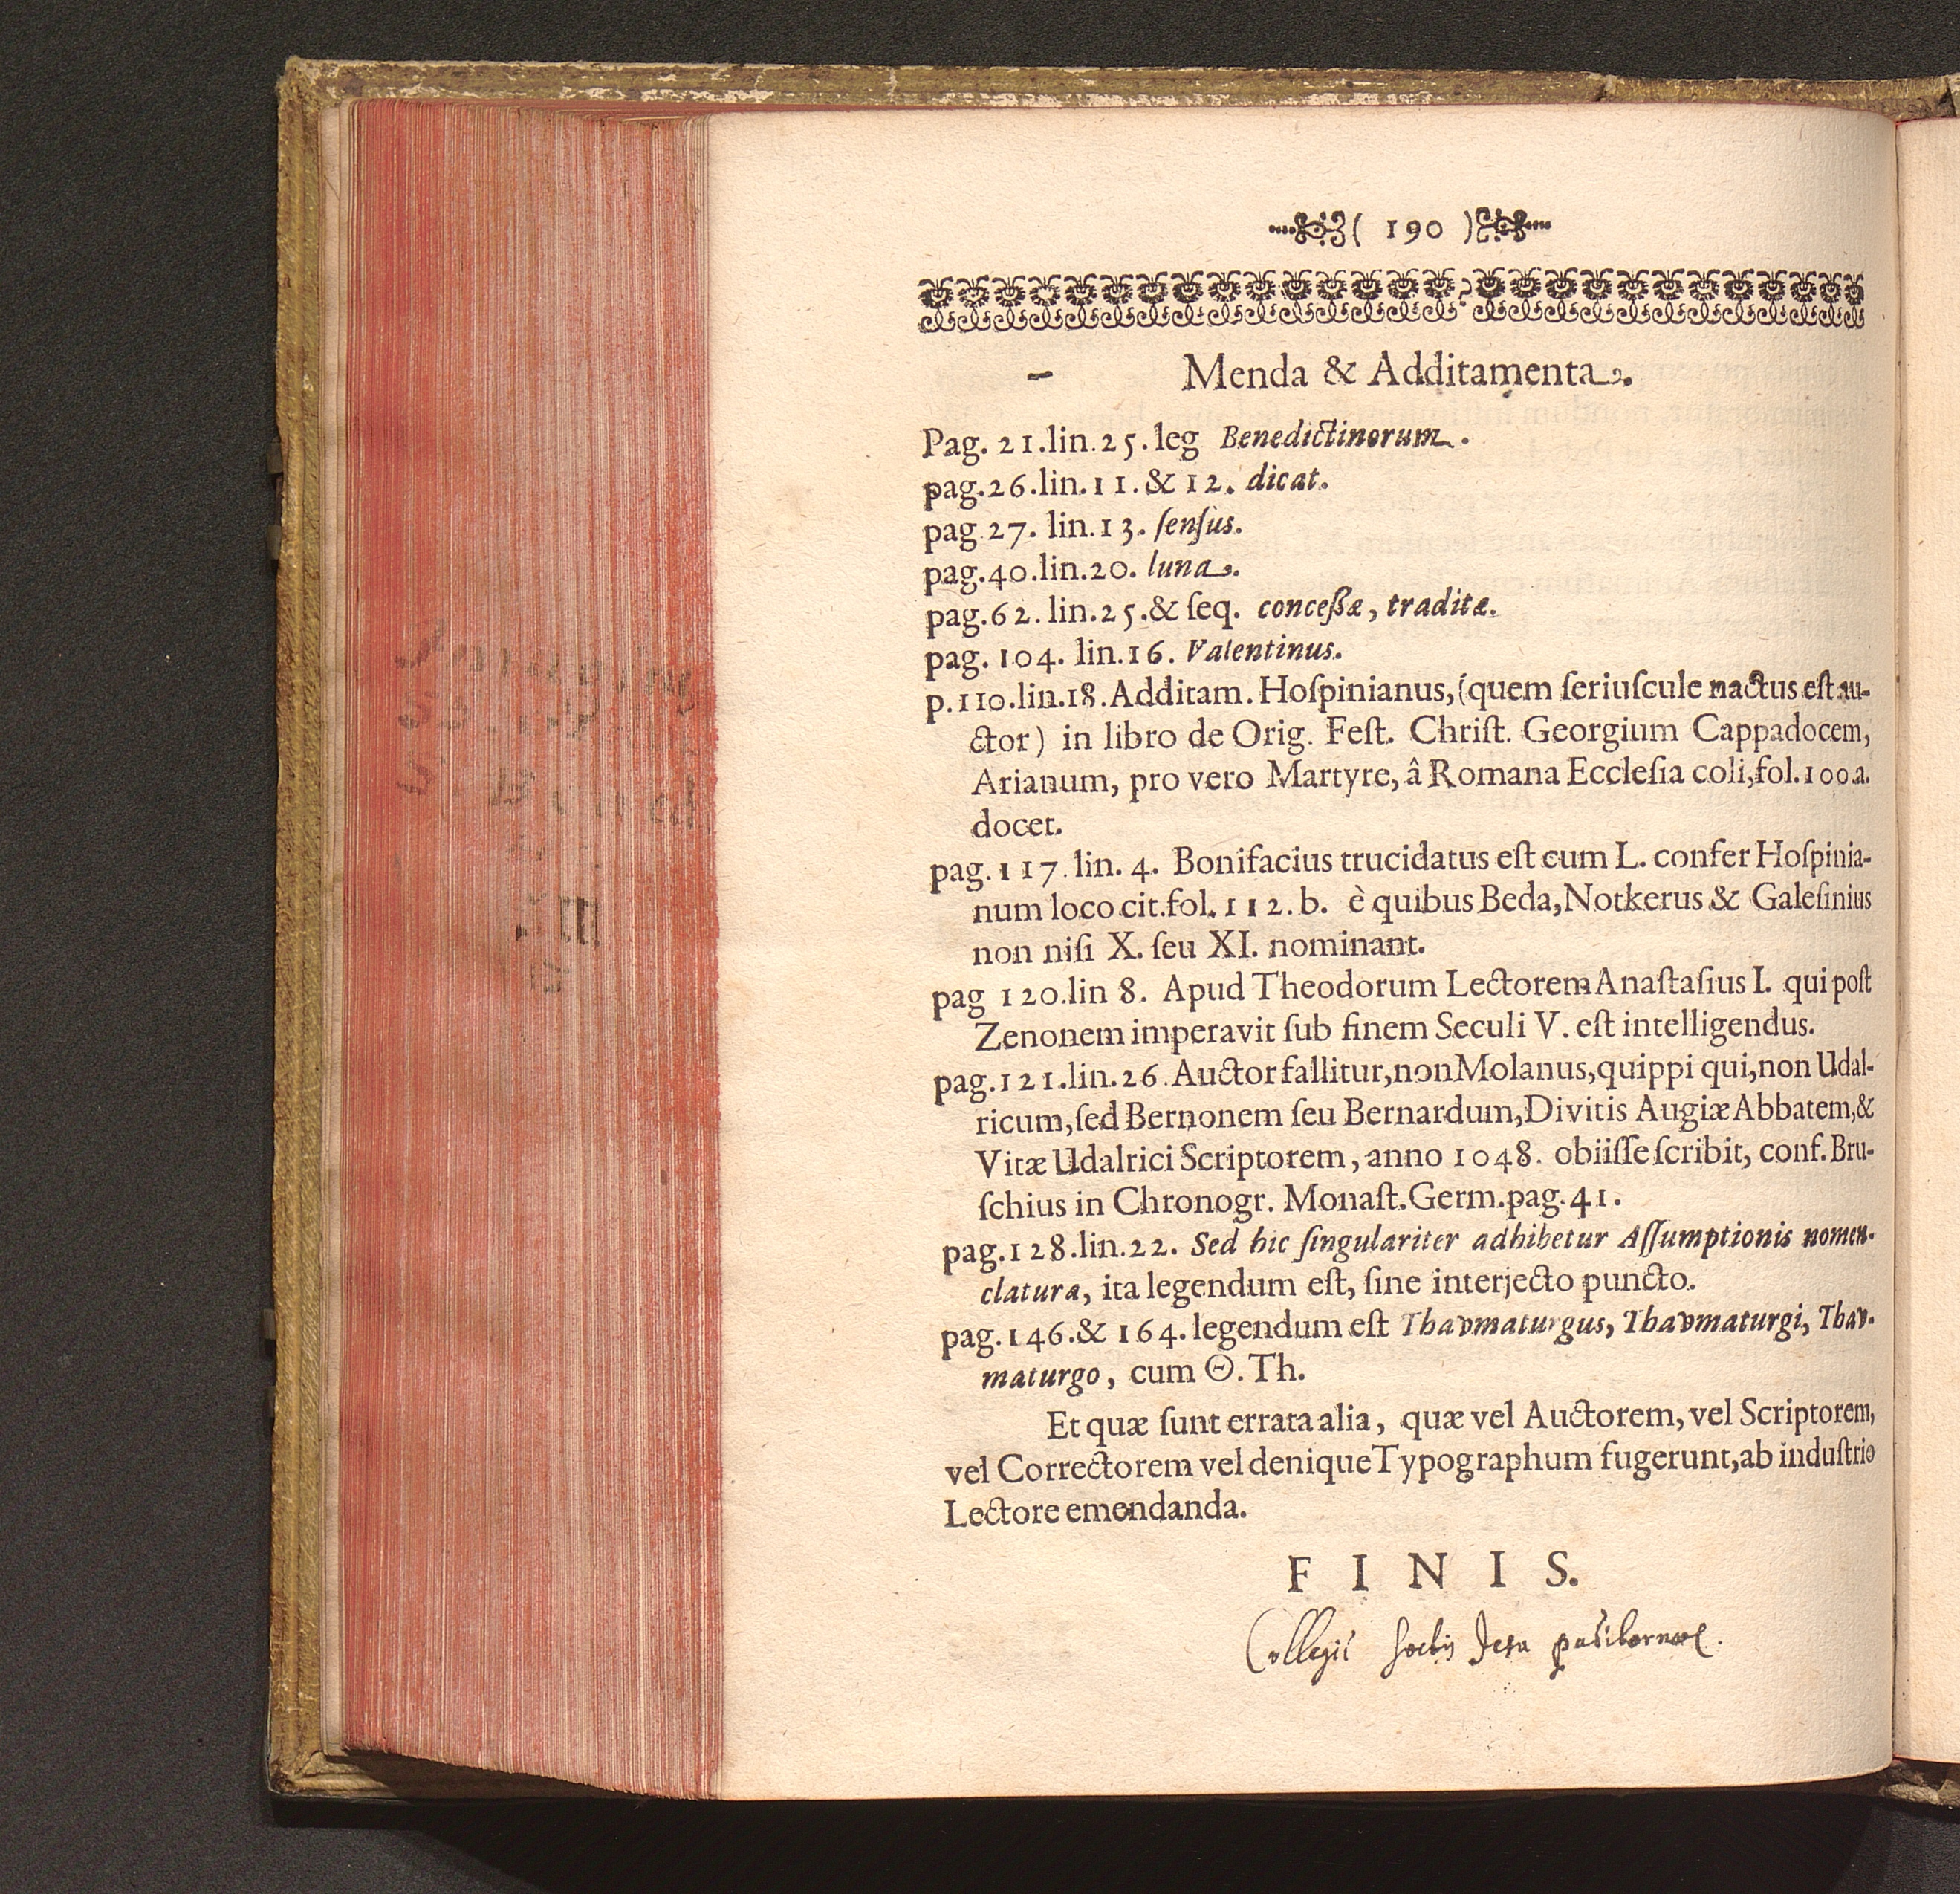 ( 190 )
Menda & Additamenta.
Pag. 21. lin. 25. leg Benedictinorum.
pag. 26. lin. 11. & 12. dicat.
pag. 27. lin. 13. ſenſus.
pag. 40. lin. 20. luna.
pag. 62. lin. 25. & ſeq. conceßæ, traditæ.
pag. 104. lin. 16. Valentinus.
p. 110. lin. 18. Additam. Hoſpinianus, (quem ſeriuſcule nactus eſt au-
ctor) in libro de Orig. Feſt. Chriſt. Georgium Cappadocem,
Arianum, pro vero Martyre, â Romana Eccleſia coli, fol. 100 a.
docet.
pag. 117. lin. 4. Bonifacius trucidatus eſt cum L. confer Hoſpinia-
num loco cit. fol. 112. b. è quibus Beda, Notkerus & Galeſinius
non niſi X. ſeu XI. nominant.
pag 120. lin 8. Apud Theodorum Lectorem Anaſtaſius I. qui poſt
Zenonem imperavit ſub finem Seculi V. eſt intelligendus.
pag. 121. lin. 26. Auctor fallitur, non Molanus, quippi qui, non Udal-
ricum, ſed Bernonem ſeu Bernardum, Divitis Augiæ Abbatem, &
Vitæ Udalrici Scriptorem, anno 1048. obiiſſe ſcribit, conf. Bru-
ſchius in Chronogr. Monaſt. Germ. pag. 41.
pag. 128. lin. 22. Sed hic ſingulariter adhibetur Aſſumptionis nomen-
clatura, ita legendum eſt, ſine interjecto puncto.
pag. 146. & 164. legendum eſt Thavmaturgus, Thavmaturgi, Thav-
maturgo, cum Θ. Th.
Et quæ ſunt errata alia, quæ vel Auctorem, vel Scriptorem,
vel Correctorem vel denique Typographum fugerunt, ab induſtrio
Lectore emendanda.
F I N I S.
Collegii Soctis Jesu